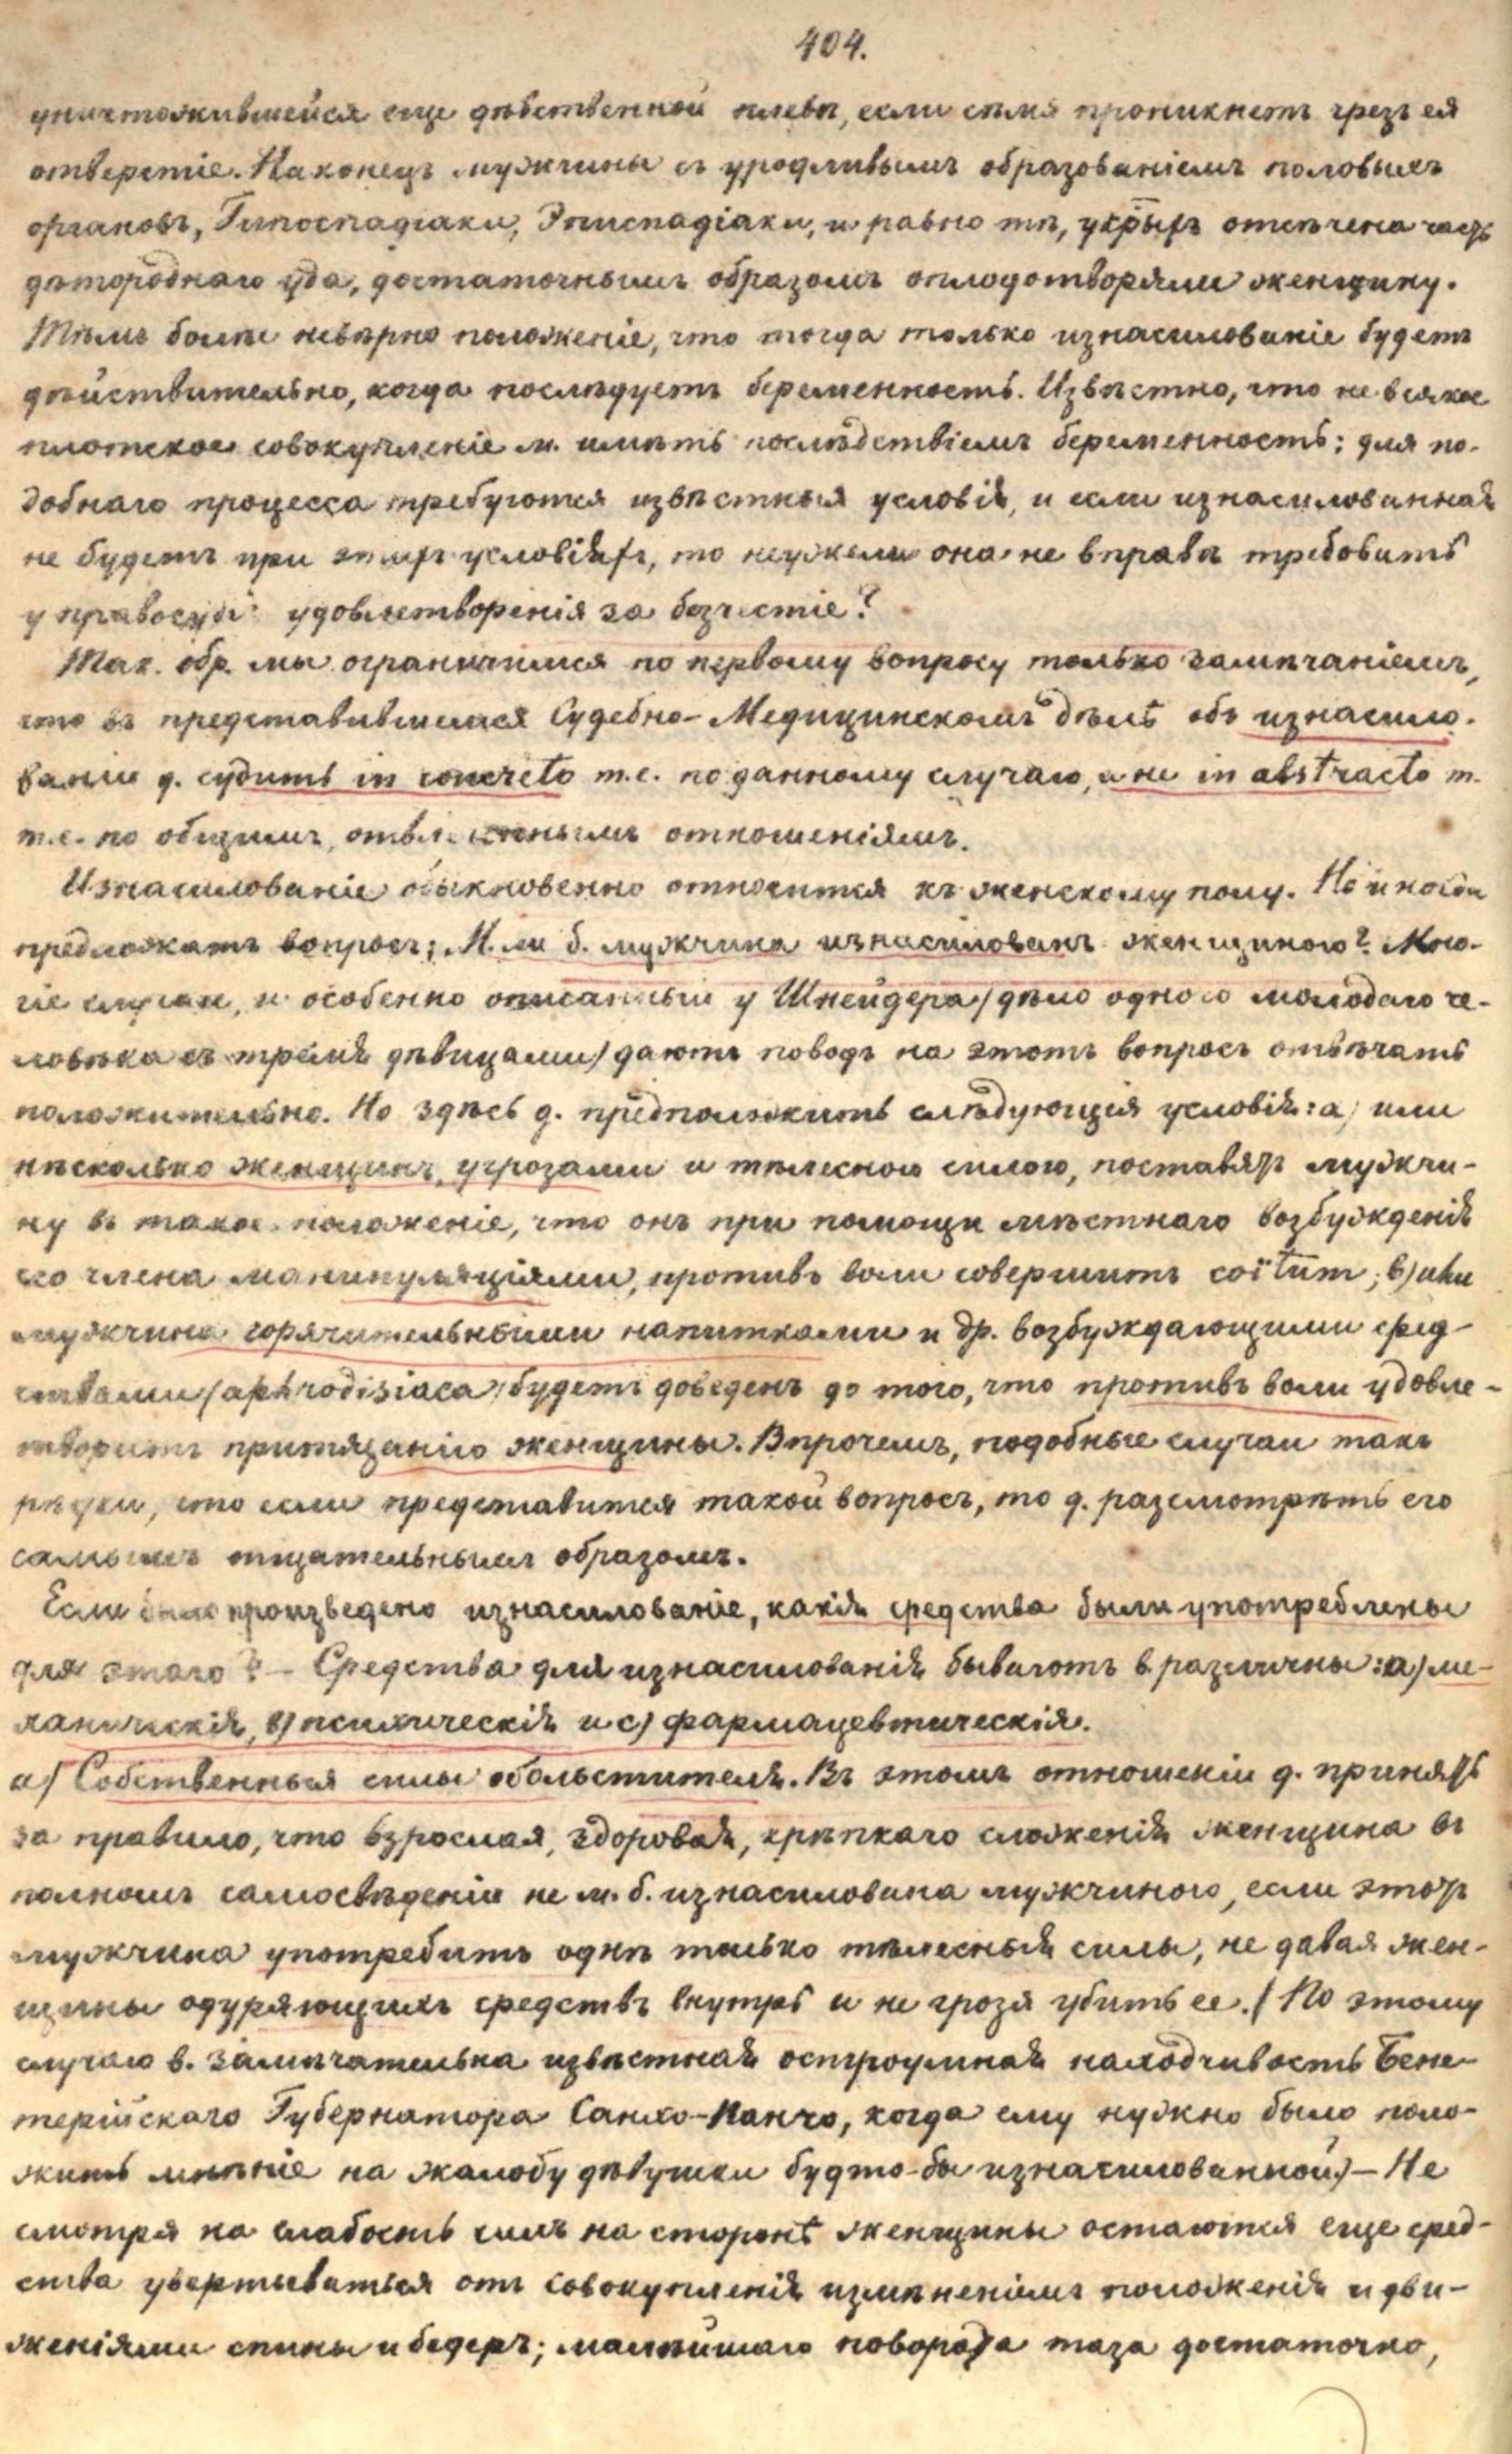 404.
уничтожившейся еще дѣвственной плевѣ, если сѣмя проникнетъ чрезъ ея
отверстіе. Наконецъ мужчины съ уродливымъ образованіемъ половыхъ
органовъ, Гипоспадіаки, Эписпадіаки, и равно тѣ, у кр̄ыхъ отсѣчена часть
дѣтороднаго уда, достаточнымъ образомъ оплодотворяли женщину.
Тѣмъ болѣе невѣрно положеніе, что тогда только изнасилованіе будетъ
дѣйствительно, когда послѣдуетъ беременность. Извѣстно, что не всякое
плотское совокупленіе м. имѣть послѣдствіемъ беременность: для по-
добнаго процесса требуются извѣстныя условія, и если изнасилованная
не будетъ при этихъ условіяхъ, то неужели она не вправѣ требовать
у правосудія удовлетворенія за безчестіе?
Так. обр. мы ограничимся по первому вопросу только замѣчаніемъ,
что въ представившемся Судебно-Медицинскомъ дѣлѣ объ изнасило-
ваніи д. судить in concreto т.е. по данному случаю, а не in abstracto т.
т.е. по общимъ, отвлеченнымъ отношеніямъ.
Изнасилованіе обыкновенно относится къ женскому полу. Но иногда
предложатъ вопросъ: М. ли б. мужчина изнасилованъ женщиною? Мно-
гіе случаи, и особенно описанный у Шнейдера (дѣло одного молодаго че-
ловѣка съ тремя дѣвицами) даютъ поводъ на этотъ вопросъ отвѣчать
положительно. Но здѣсь д. предположить слѣдующія условія: а) или
нѣсколько женщинъ, угрозами и тѣлесною силою, поставятъ мужчи-
ну въ такое положеніе, что онъ при помощи мѣстнаго возбужденія
его члена манипуляціями, противъ воли совершитъ coïtum; в) или
мужчина горячительными напитками и др. возбуждающими сред-
ствами (aphrodisiaca) будетъ доведенъ до того, что противъ воли удовле-
творитъ притязанію женщины. Впрочемъ, подобные случаи такъ
рѣдки, что если представится такой вопросъ, то д. разсмотрѣть его
самымъ тщательнымъ образомъ.
Если было произведено изнасилованіе, какія средства были употреблены
для этого? – Средства для изнасилованія бываютъ в. различны: а) ме-
ханическія, в) психическія и с) фармацевтическія.
а) Собственныя силы обольстителя. Въ этомъ отношеніи д. принять
за правило, что взрослая, здоровая, крѣпкаго сложенія женщина въ
полномъ самосвѣденіи не м. б. изнасилована мужчиною, если этотъ
мужчина употребитъ однѣ только тѣлесныя силы, не давая жен-
щины одуряющихъ средствъ внутрь и не грозя убить ее. (По этому
случаю в. замѣчательна извѣстная остроумная находчивость Бене-
терійскаго Губернатора Санхо-Панчо, когда ему нужно было поло-
жить мнѣніе на жалобу дѣвушки будто-бы изнасилованной.) – Не
смотря на слабость силъ на сторонѣ женщины остаются еще сред-
ства увертываться отъ совокупленія измѣненіемъ положенія и дви-
женіями спины и бедеръ; малѣйшаго поворота таза достаточно,